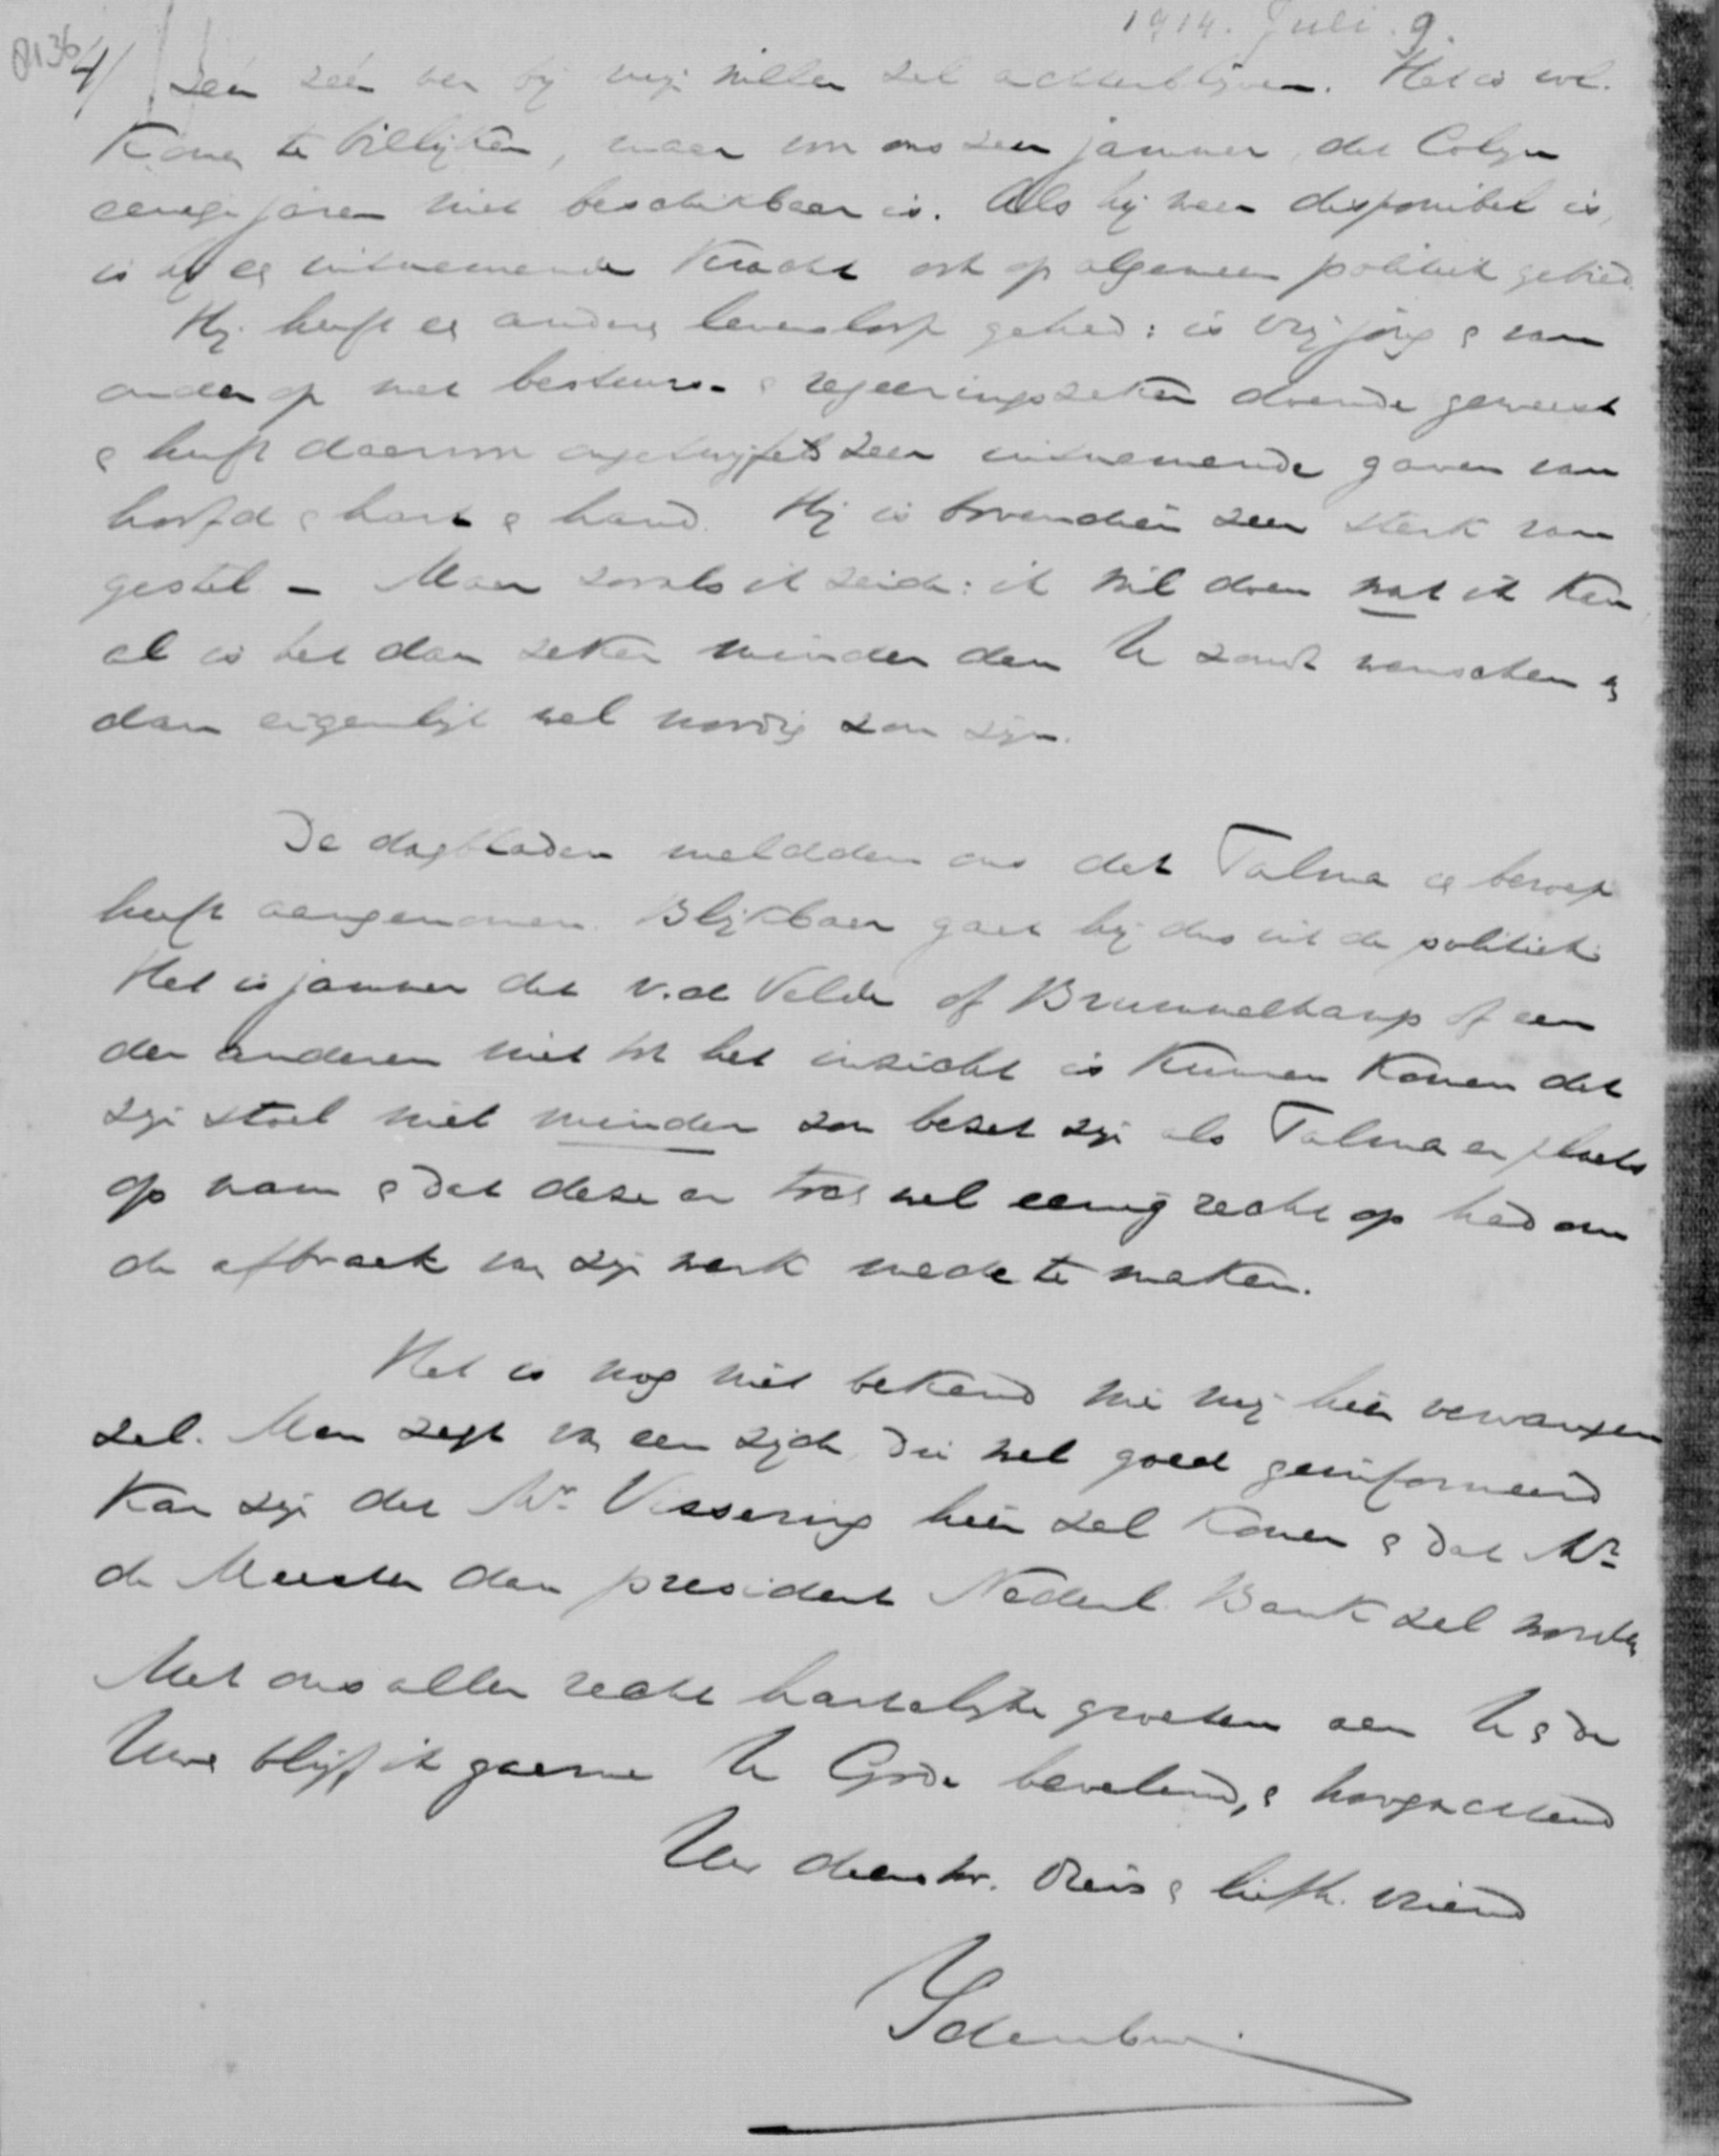 1914. Juli. 9.
8136
4/ zeer zeer ver bij mijn willen zal achterblijven. Het is vol-
komen te billijken, maar voor ons zeer jammer, dat Colijn
eenige jaren niet beschikbaar is. Als hij weer disponibel is,
is hij een uitnemende kracht ook op algemeen politiek gebied.
Hij heeft een andere levensloop gehad: is vrij jong & van
onder op met bestuurs- & regeeringszaken doende geweest
& heeft daarvoor ongetwijfeld zeer uitnemende gaven van
hoofd & hart & hand. Hij is bovendien zeer sterk van
gestel – Maar zooals ik zeide: ik wil doen wat ik kan
al is het dan zeker minder dan U zoudt wenschen en
dan eigenlijk wel noodig zou zijn.
De dagbladen meldden ons dat Talma een beroep
heeft aangenomen. Blijkbaar gaat hij dus uit de politiek.
Het is jammer dat v.d. Velde of Brummelkamp of een
der anderen niet tot het inzicht is kunnen komen dat
zijn stoel niet minder zou bezet zijn als Talma er plaats
op nam & dat deze er toch wel eenig recht op had om
de afbraak van zijn werk mede te maken.
Het is nog niet bekend wie mij hier vervangen
zal. Men zegt van een zijde die wel goed geinformeerd
kan zijn dat Mr. Vissering hier zal komen & dat Mr.
de Meester dan president Nederl. Bank zal worden
Met ons aller recht hartelijke groeten aan U & de
Uwe blijf ik gaarne U Gode bevelend, & hoogachtend
Uw dienstw. & liefh. vriend
Idenburg